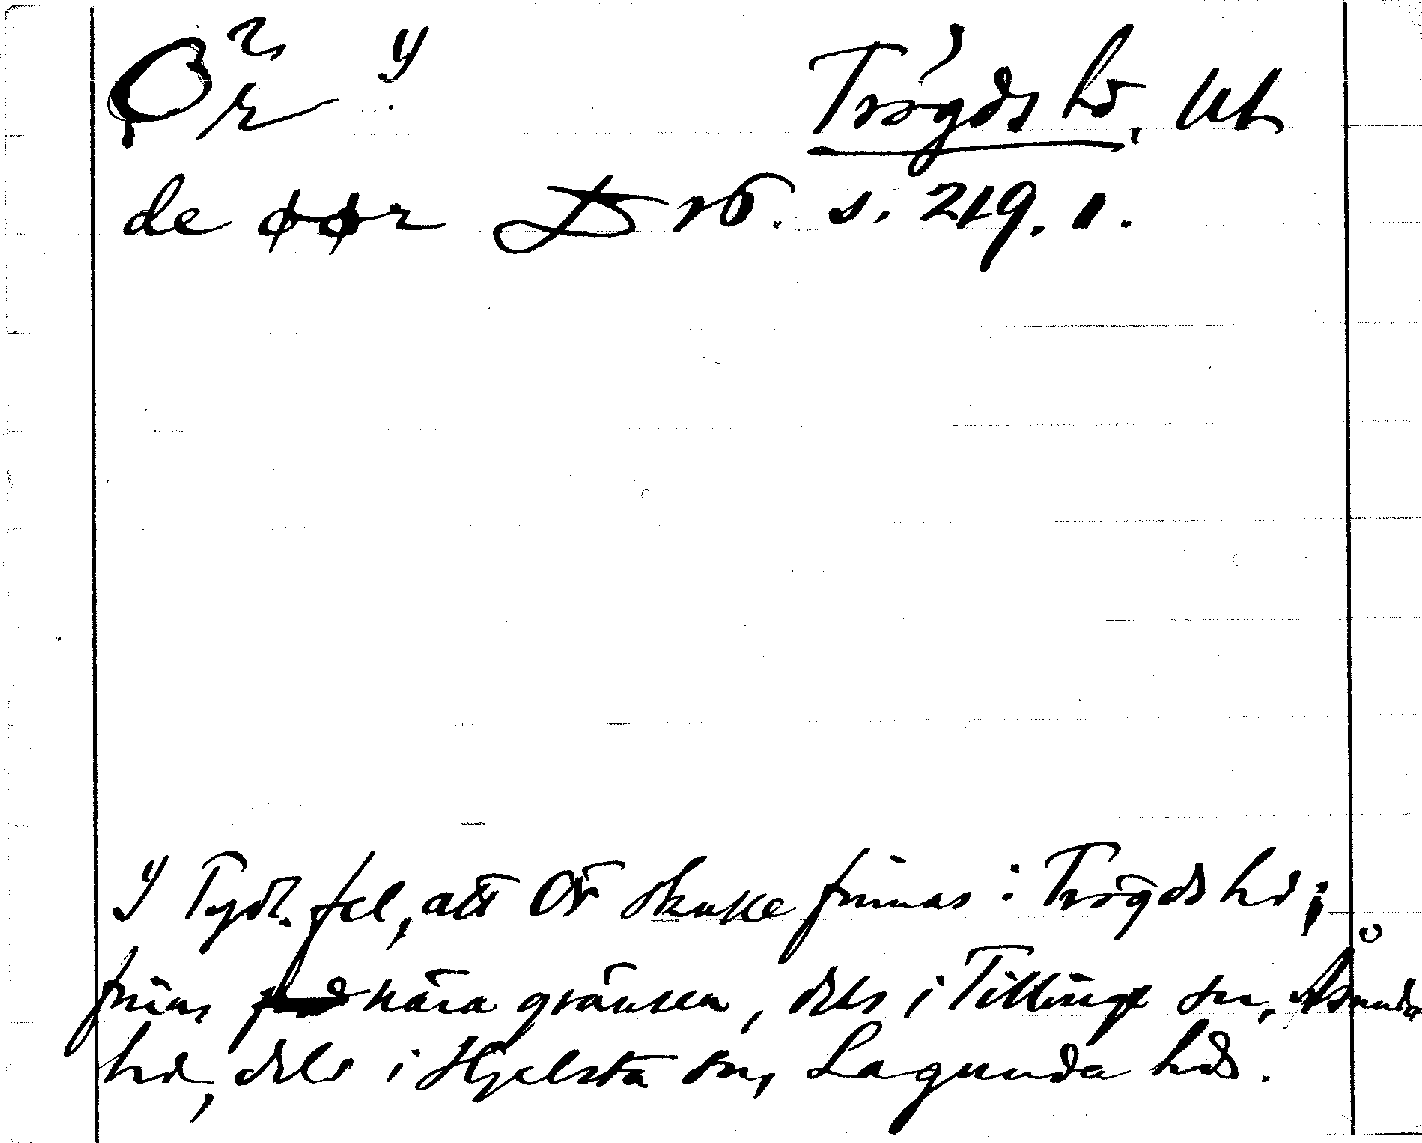 Ör y Trögds hd. Ul
de øør D 16. s. 219. 1.
y Tydl. fel, att Ör skulle finnas i Trögds hd;
finns nära gränsen, dels i Tillinge sn, Åsunda
hd, dels i Hjelsta sn, Lagunda hd.